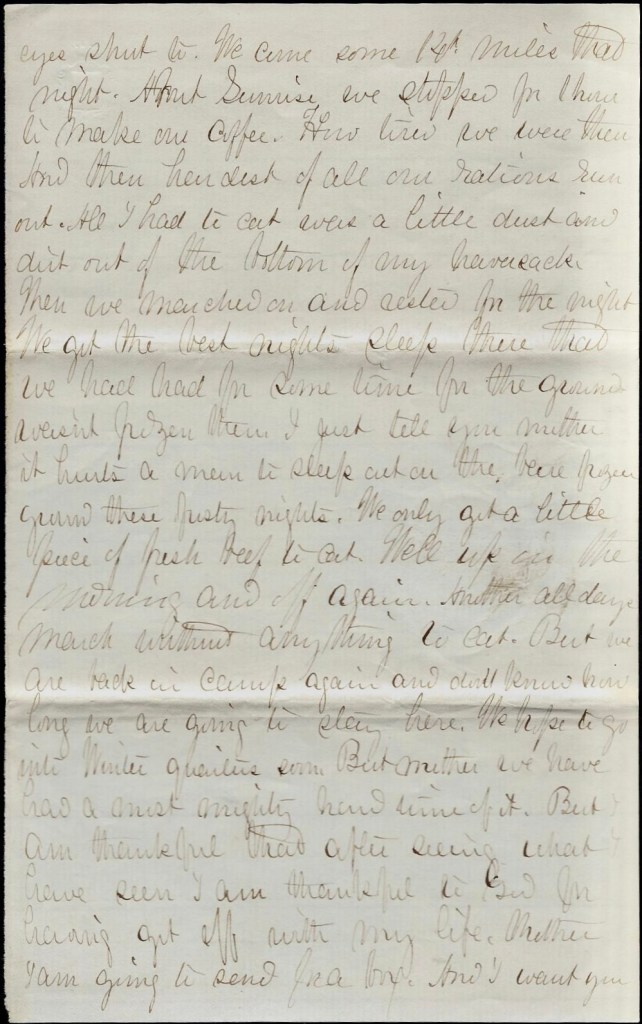 eyes shut to. We come some 12th miles that
night. About Sunrise we stopped for three
to make our Coffee. How tired we were then
And then hardest of all our rations run
out. All I had to eat was a little dust and
dirt out of the bottom of my haversack.
Then we marched on and rested for the night
We got the best nights sleep there that
we had had for some time for the ground
wasint frozen then. I just tell you mother
it hurts a man to sleep out on the bare frozen
ground these frosty nights. We only got a little
piece of fresh beef to eat. Well up in the
morning and off again. Another all days
march without anything to eat. But we
are back in Camp again and dont know how
long we are going to stay here. We hope to go
into Winter quarters soon. But mother we have
had a most mighty hard time of it. But I
am thankful that after seeing what I
have seen I am thankful to God for
having got off with my life. Mother
I am going to send for a box. And I want you